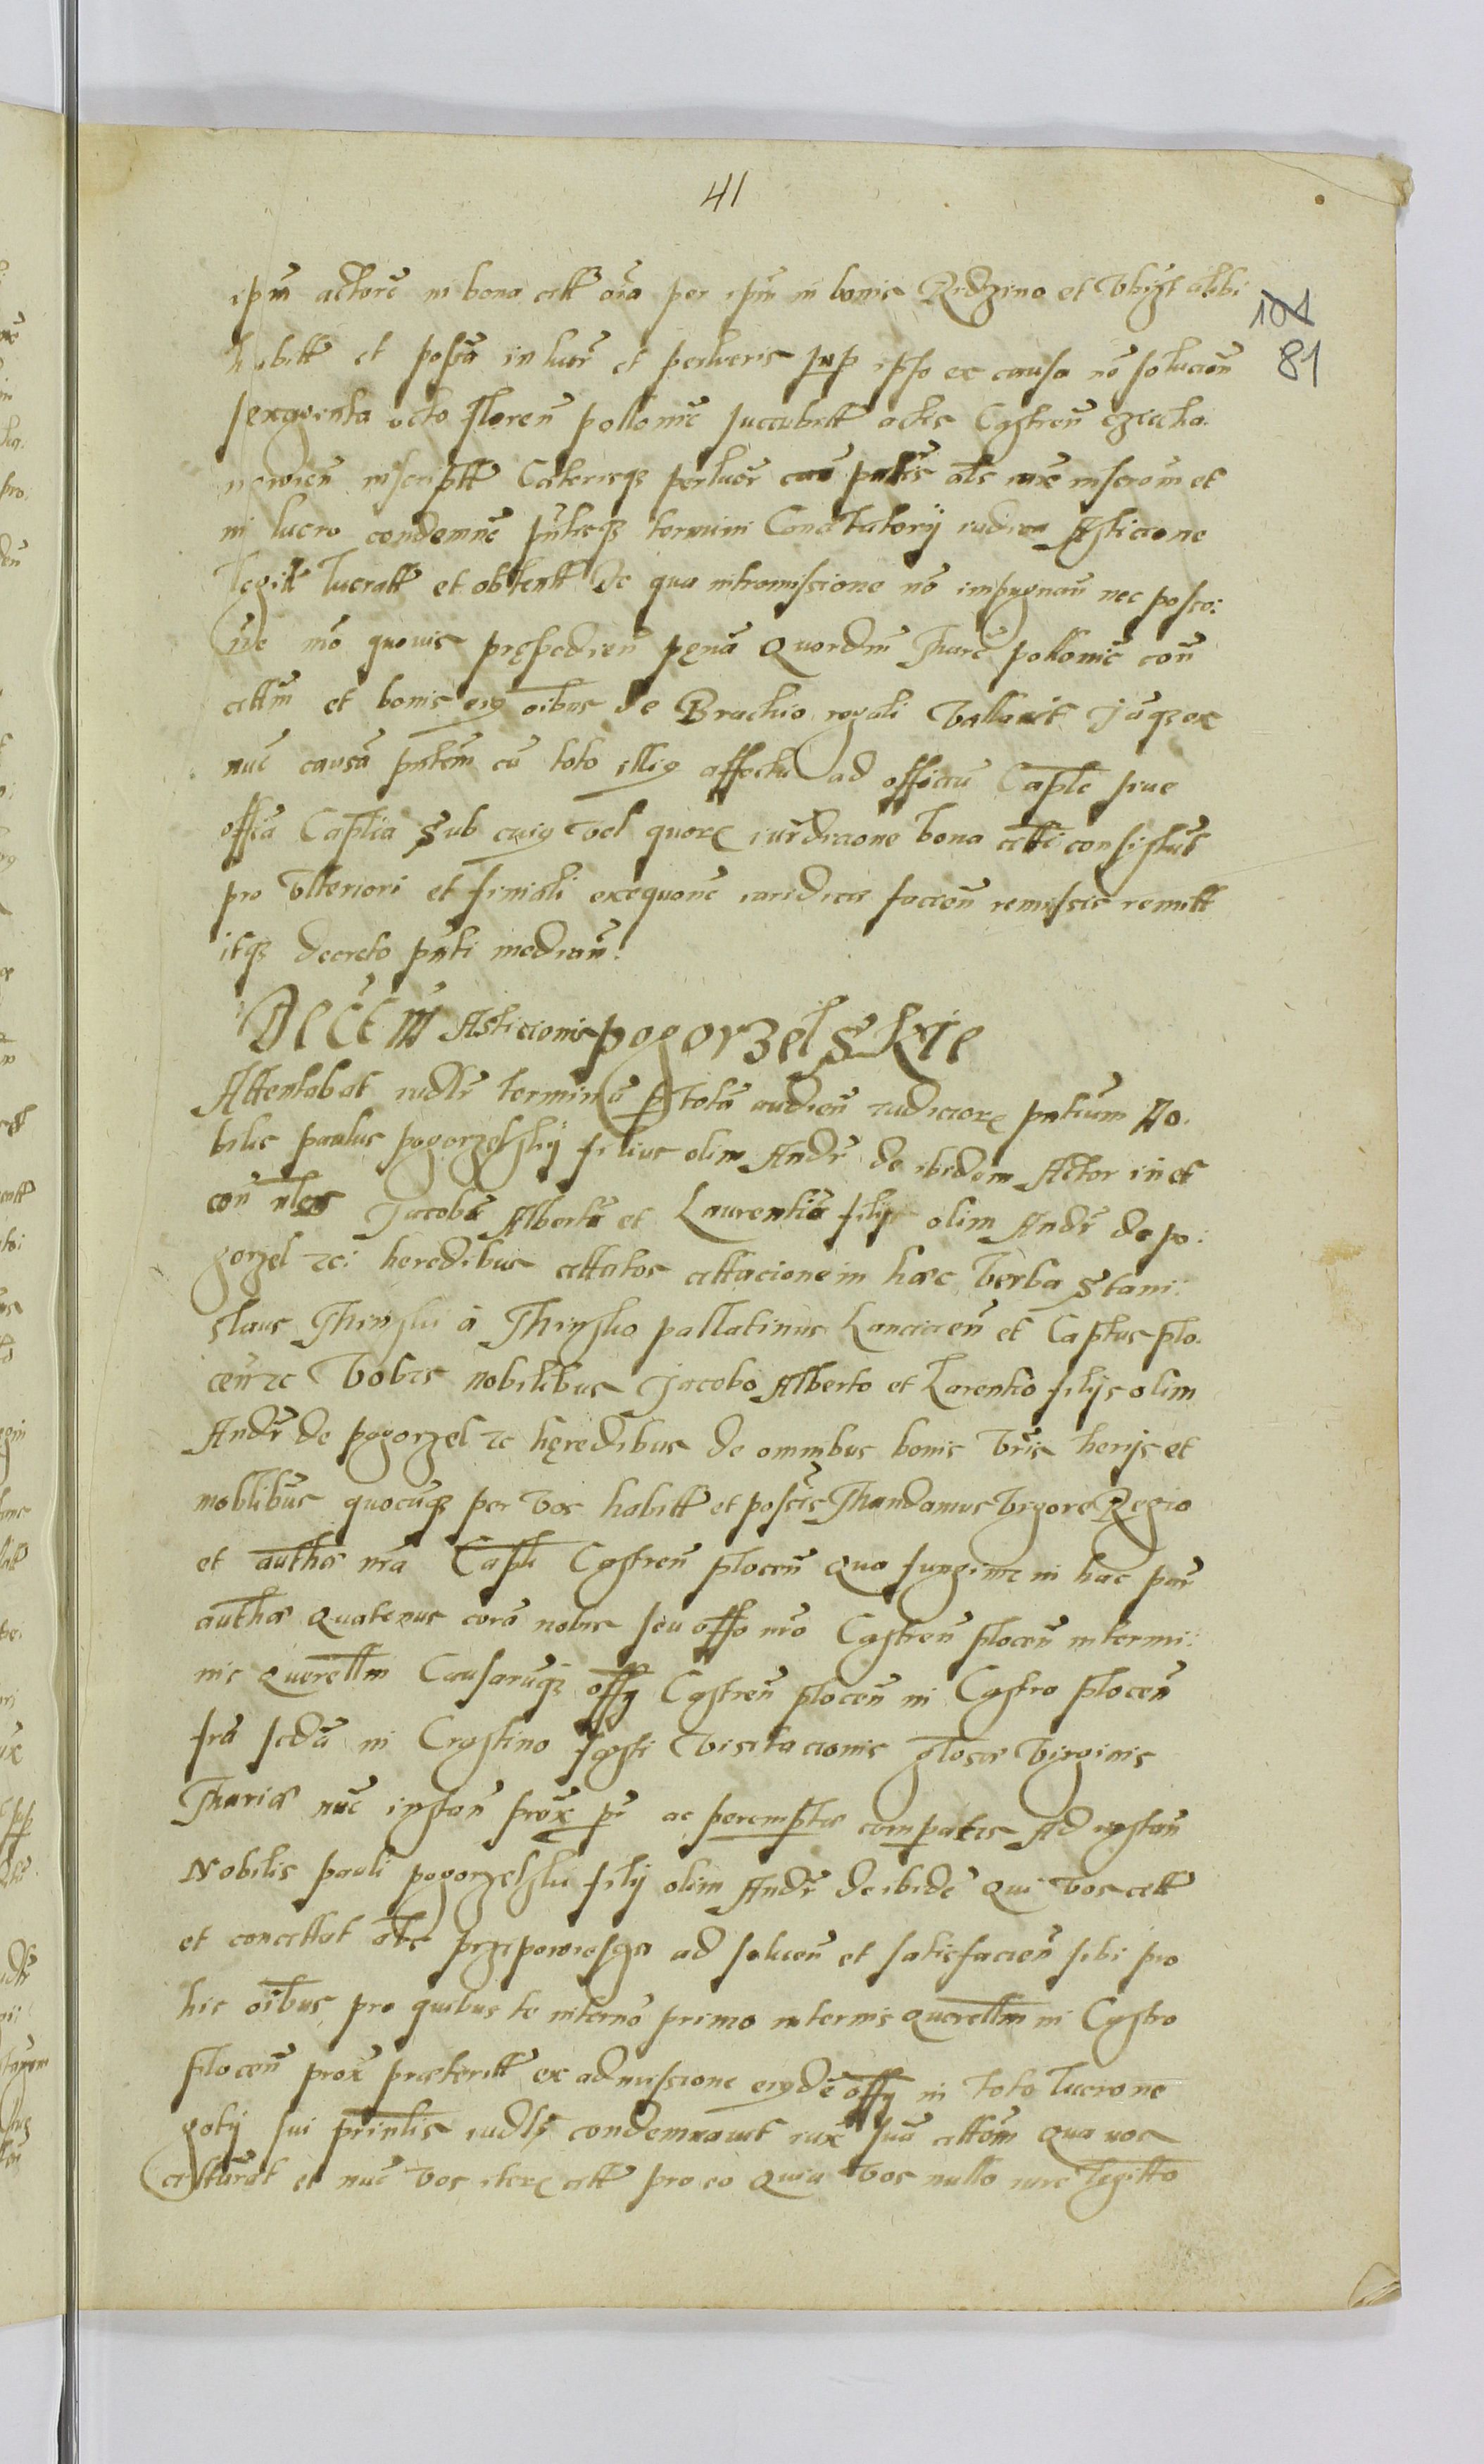 41
104
81
ipm̃ actorẽ in bona citt oĩa per ipm̃ in bonis Radzino et Vbyst alibi
habitt et possã in lucr̃ et perlucris sup ipso ex causa nõ solucioñ
sexaginta octo floreñ polloniẽ succubitt actis Castreñ czecha
nowieñ inscriptt Cæterisq3 perlucr̃ als iure inscrom̃ et
in lucro condemnẽ pñtisq3 termini Concitatorij iudicia Asticione
legitt lucratt et obtentt De qua intromissione nõ impugnañ nec posses:
m̃o quovis prępedieñ pęnã Quordm̃ Marc̃ polloniẽ coñ
cittm̃ et bonis eiq oĩbus de Brachio regali Vallavit Jáq3 ex
nũc causã pñtem cũ toto illiq affectu ad officiũ Capłe sive
offia Captia Sub cuiq vel quorꝝ iurdicione bona citti consistũt
pro Vlteriori et finiali exequonẽ iuridica facieñ remissis remitt
itq3 decreto pñti mediañ.
Decẽm̃ Asticionis pogorzelskie
Attentabat iudłr̃ terminũ p totã audieñ iudiciorꝝ pñtium No.
bilis paulus pogorzelskij filius olim Andr̃ de ibidem Actor in et
coñ nłes Jacobũ Albertũ et Laurentiũ filijs olim Andr̃ de po:
gorzel etc: heredibus cittatos cittacione in hæc verba Stani.
slaus Minski à Minsko pallatinus Lanciciẽn et Captus plo.
ceñ etc Vobis nobilibus Jacobo Alberto et Larentio filijs olim
Andr̃ de pogorzel etc hęredibus de omnibus bonis vr̃is herijs et
moblibus quocũq3 per vos habitt et possis Mandamus Vigore Regio
et autha nr̃a Capłi Castreñ ploceñ Qua fungimr̃ in hac par̃
autha Quatenus corã nobis seu offo nr̃o Castreñ ploceñ in termi:
nis Querellm̃ Causarũq3 offij Castreñ ploceñ in Castro ploceñ
fr̃a scdã in Crastino festi Visitacionis glosæ Virginis
Mariæ nũc instañ prox̃ p̃ ac peremptæ compatis Ad instañ
Nobilis pauli pogorzelski filij olim Andr̃ de ibidẽ Qui vos citt
et concittat als przipowiesga ad solueñ et satisfacieñ sibi pro
his oĩbus pro quibus te in termõ primo in termis Querellm̃ in Castro
ploceñ prox̃ præteritt ex admissione eiqdẽ offij in toto lucro ne
gotij sui prinlis iudłr condemnavit iux̃ suã cittõm Qua vos
citturat et nũc vos iterꝝ citt pro eo Quia vos nullo iure legitto